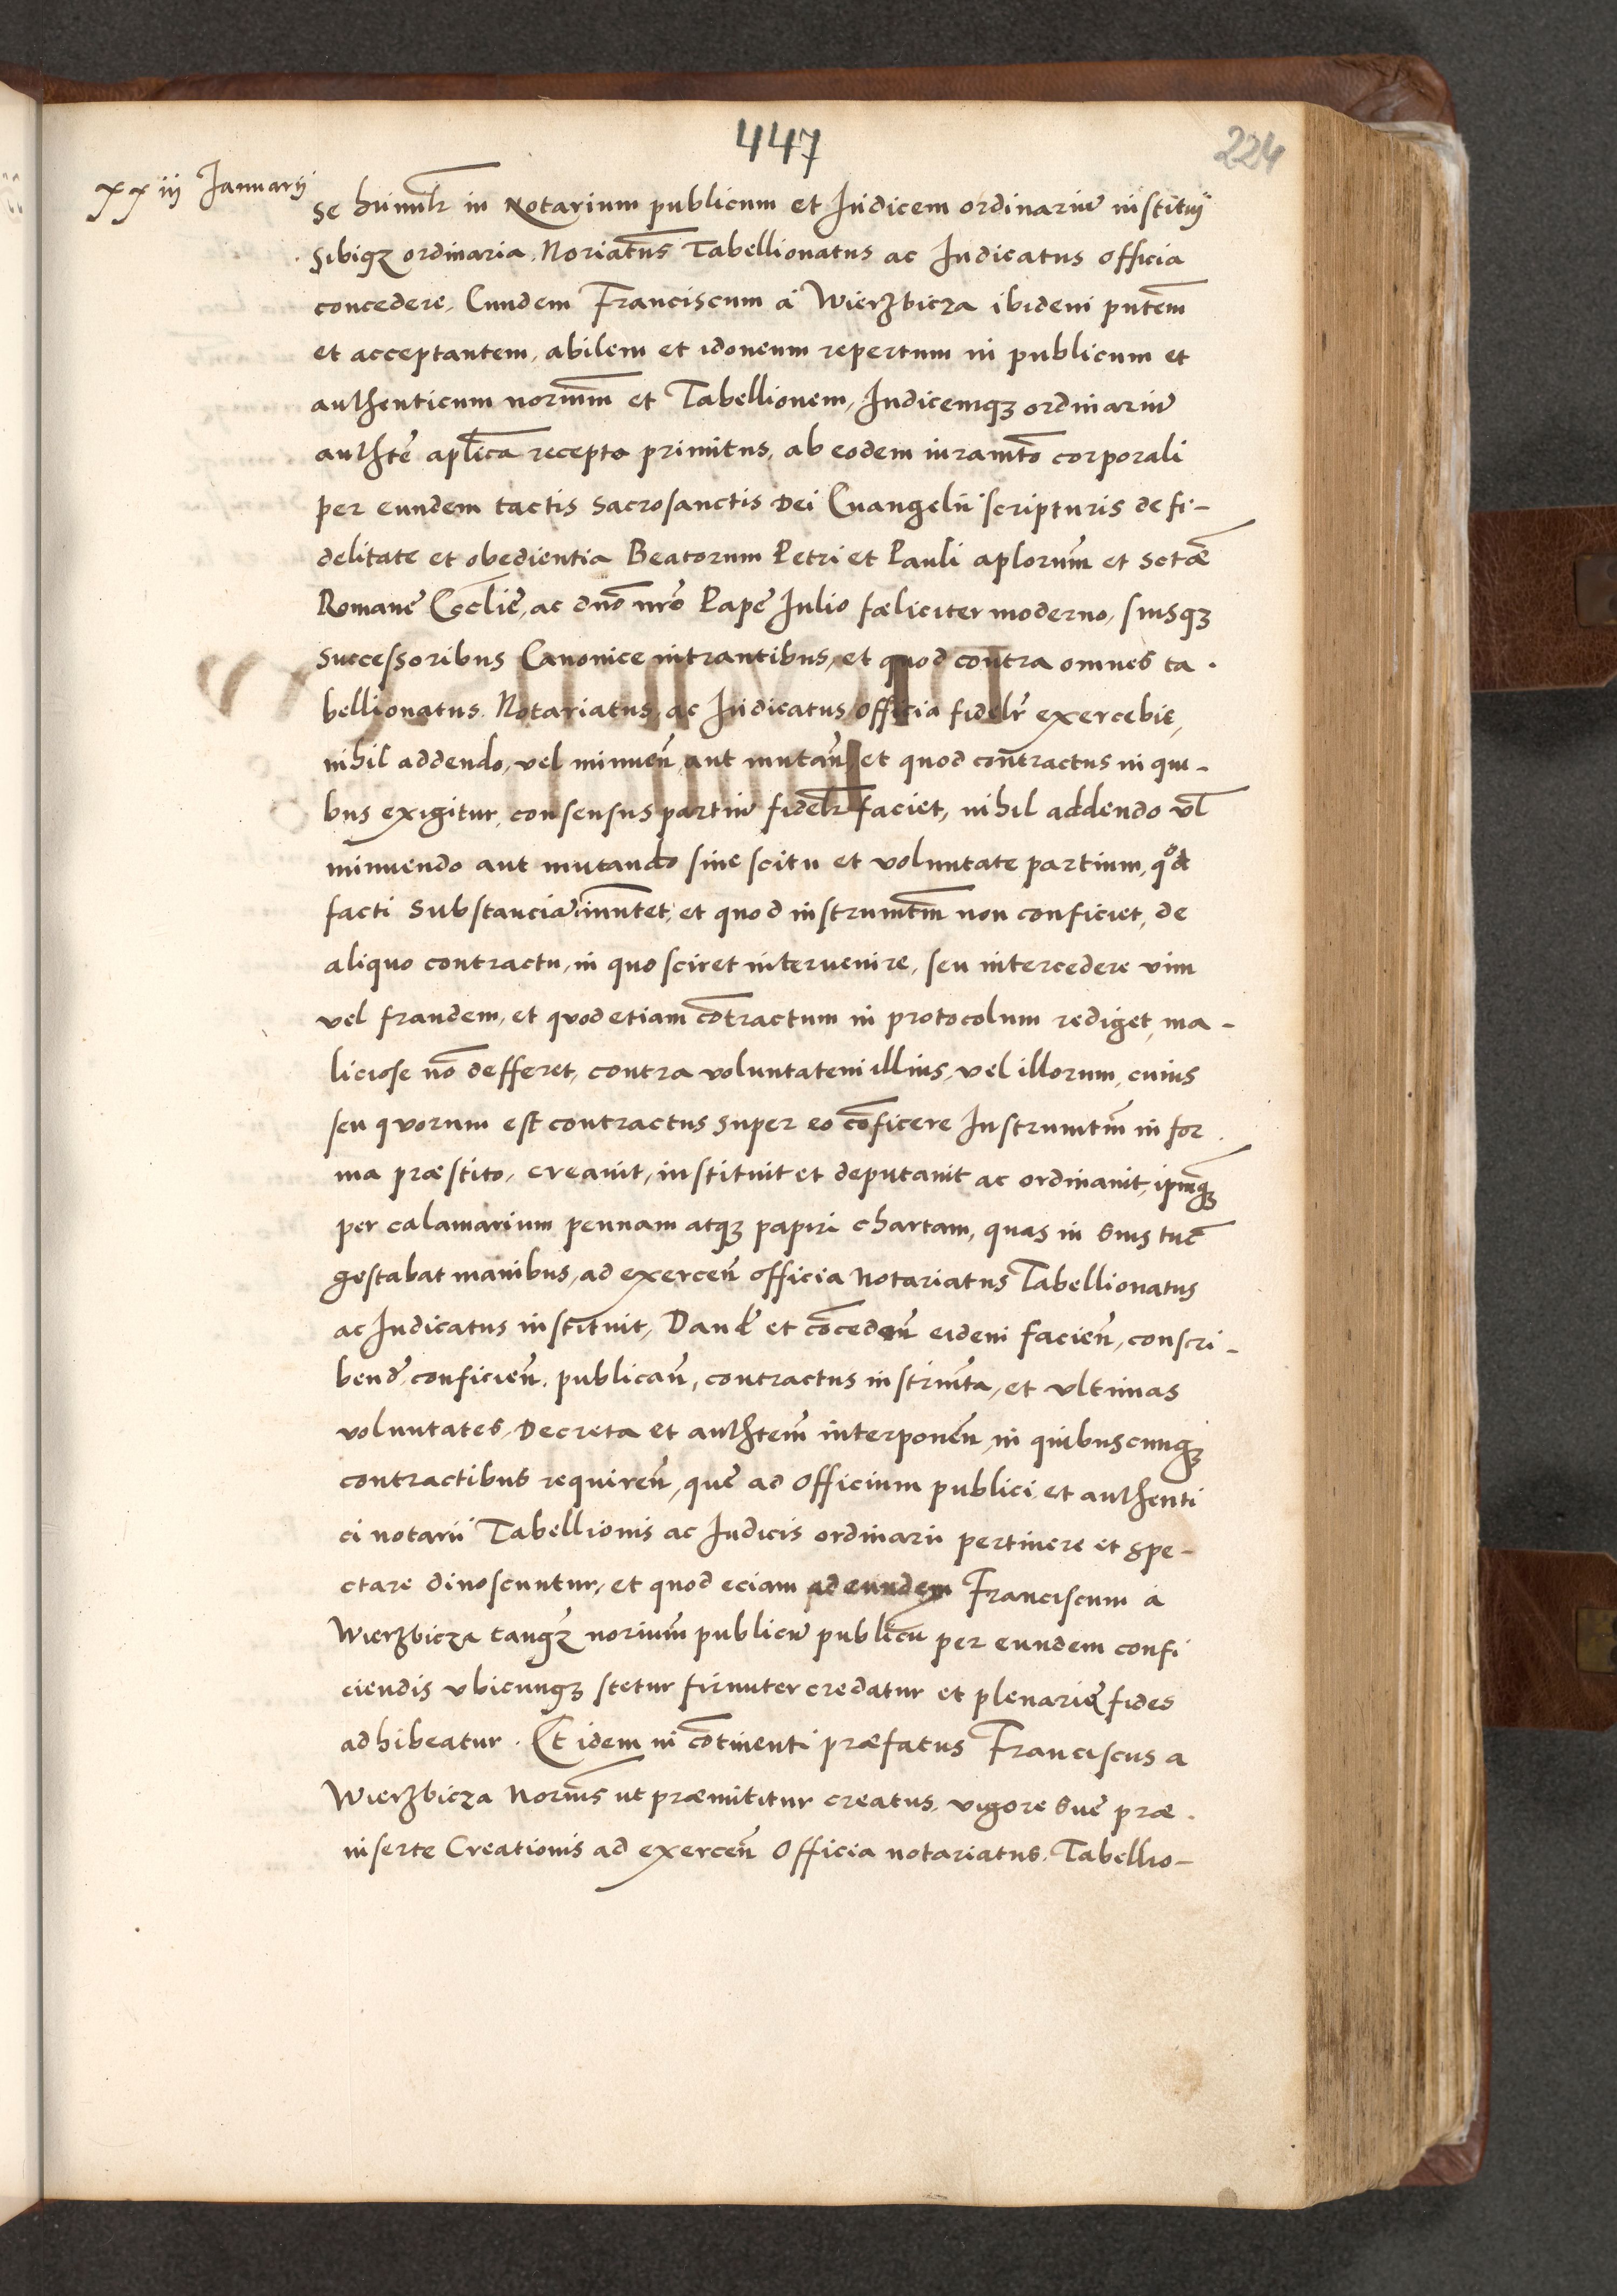 447
224
xxiii Januarii
se humilr in Notarium publicum et Iudicem ordinariū institui
sibiqȝ ordinaria Noriatus Tabellionatus ac Iudicatus officia
concedere, Eundem Franciscum à Wierzbicza ibidem pntem
et acceptantem, abilem et idoneum repertum in publicum et
authenticum norium et Tabellionem, Iudicemqȝ ordinariū
authtē aplica recepto primitus, ab eodem iuramto corporali
per eundem tactis sacrosanctis Dei Euangelii scripturis de fi-
delitate et obedientia Beatorum Petri et Pauli aplorum et sctæ
Romane Ecclie, ac dno nro Pape Julio fæliciter moderno, suisqȝ
successoribus Canonice intrantibus, et quod contra omnes ta-
bellionatus Notariatus ac Iudicatus officia fidelr exercebit,
nihil addendo, vel minuen aut mutan, et quod contractus in qui-
bus exigitur consensus partiū fidelr faciet, nihil addendo vl
minuendo aut mutando sine scitu et voluntate partium, qod
facti substanciā imutet, et quod instrumtm non conficiet, de
aliquo contractu, in quo sciret interuenire, seu intercedere vim
vel fraudem, et quod etiam contractum in protocolum rediget, ma-
liciose nō defferet, contra voluntatem illius, vel illorum, cuius
seu quorum est contractus super eo conficere Instrumtm in for
ma præstito, creauit, instituit et deputauit ac ordinauit, ipmqȝ
per calamarium pennam atqȝ papiri chartam, quas in suis tūc
gestabat manibus, ad exercen officia Notariatus Tabellionatus
ac Iudicatus instituit, Dand et cōceden eidem facien, conscri-
bend conficien publican, contractus instrumta, et vltimas
voluntates, Decreta et authtem interponen, in quibuscunqȝ
contractibus requiren, que ad Officium publici et authenti
ci notarii Tabellionis ac Iudicis ordinarii pertinere et spe-
ctare dinoscuntur, et quod eciam ad eundem Franciscum à
Wierzbicza tanqȝ norium publicū publicū per eundem confi
ciendis vbicunqȝ stetur firmiter credatur et plenarie fides
adhibeatur. Et idem in cōtinenti præfatus Franciscus a
Wierzbicza Norius ut præmittitur creatus, vigore sue præ-
inserte Creationis ad exercen Officia notariatus Tabellio-